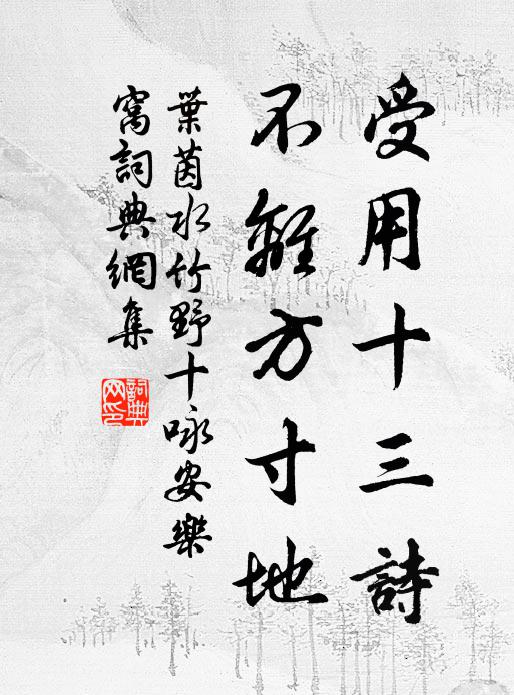 受用十三詩
不離方寸地
葉茵水竹野十咏安樂
窩詞典網集
詞典網印